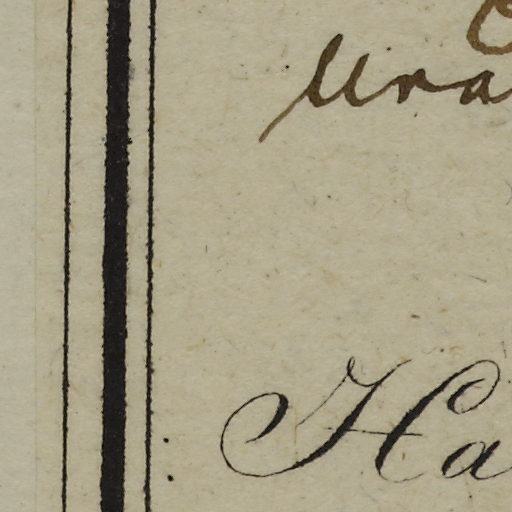 Ura
Ha